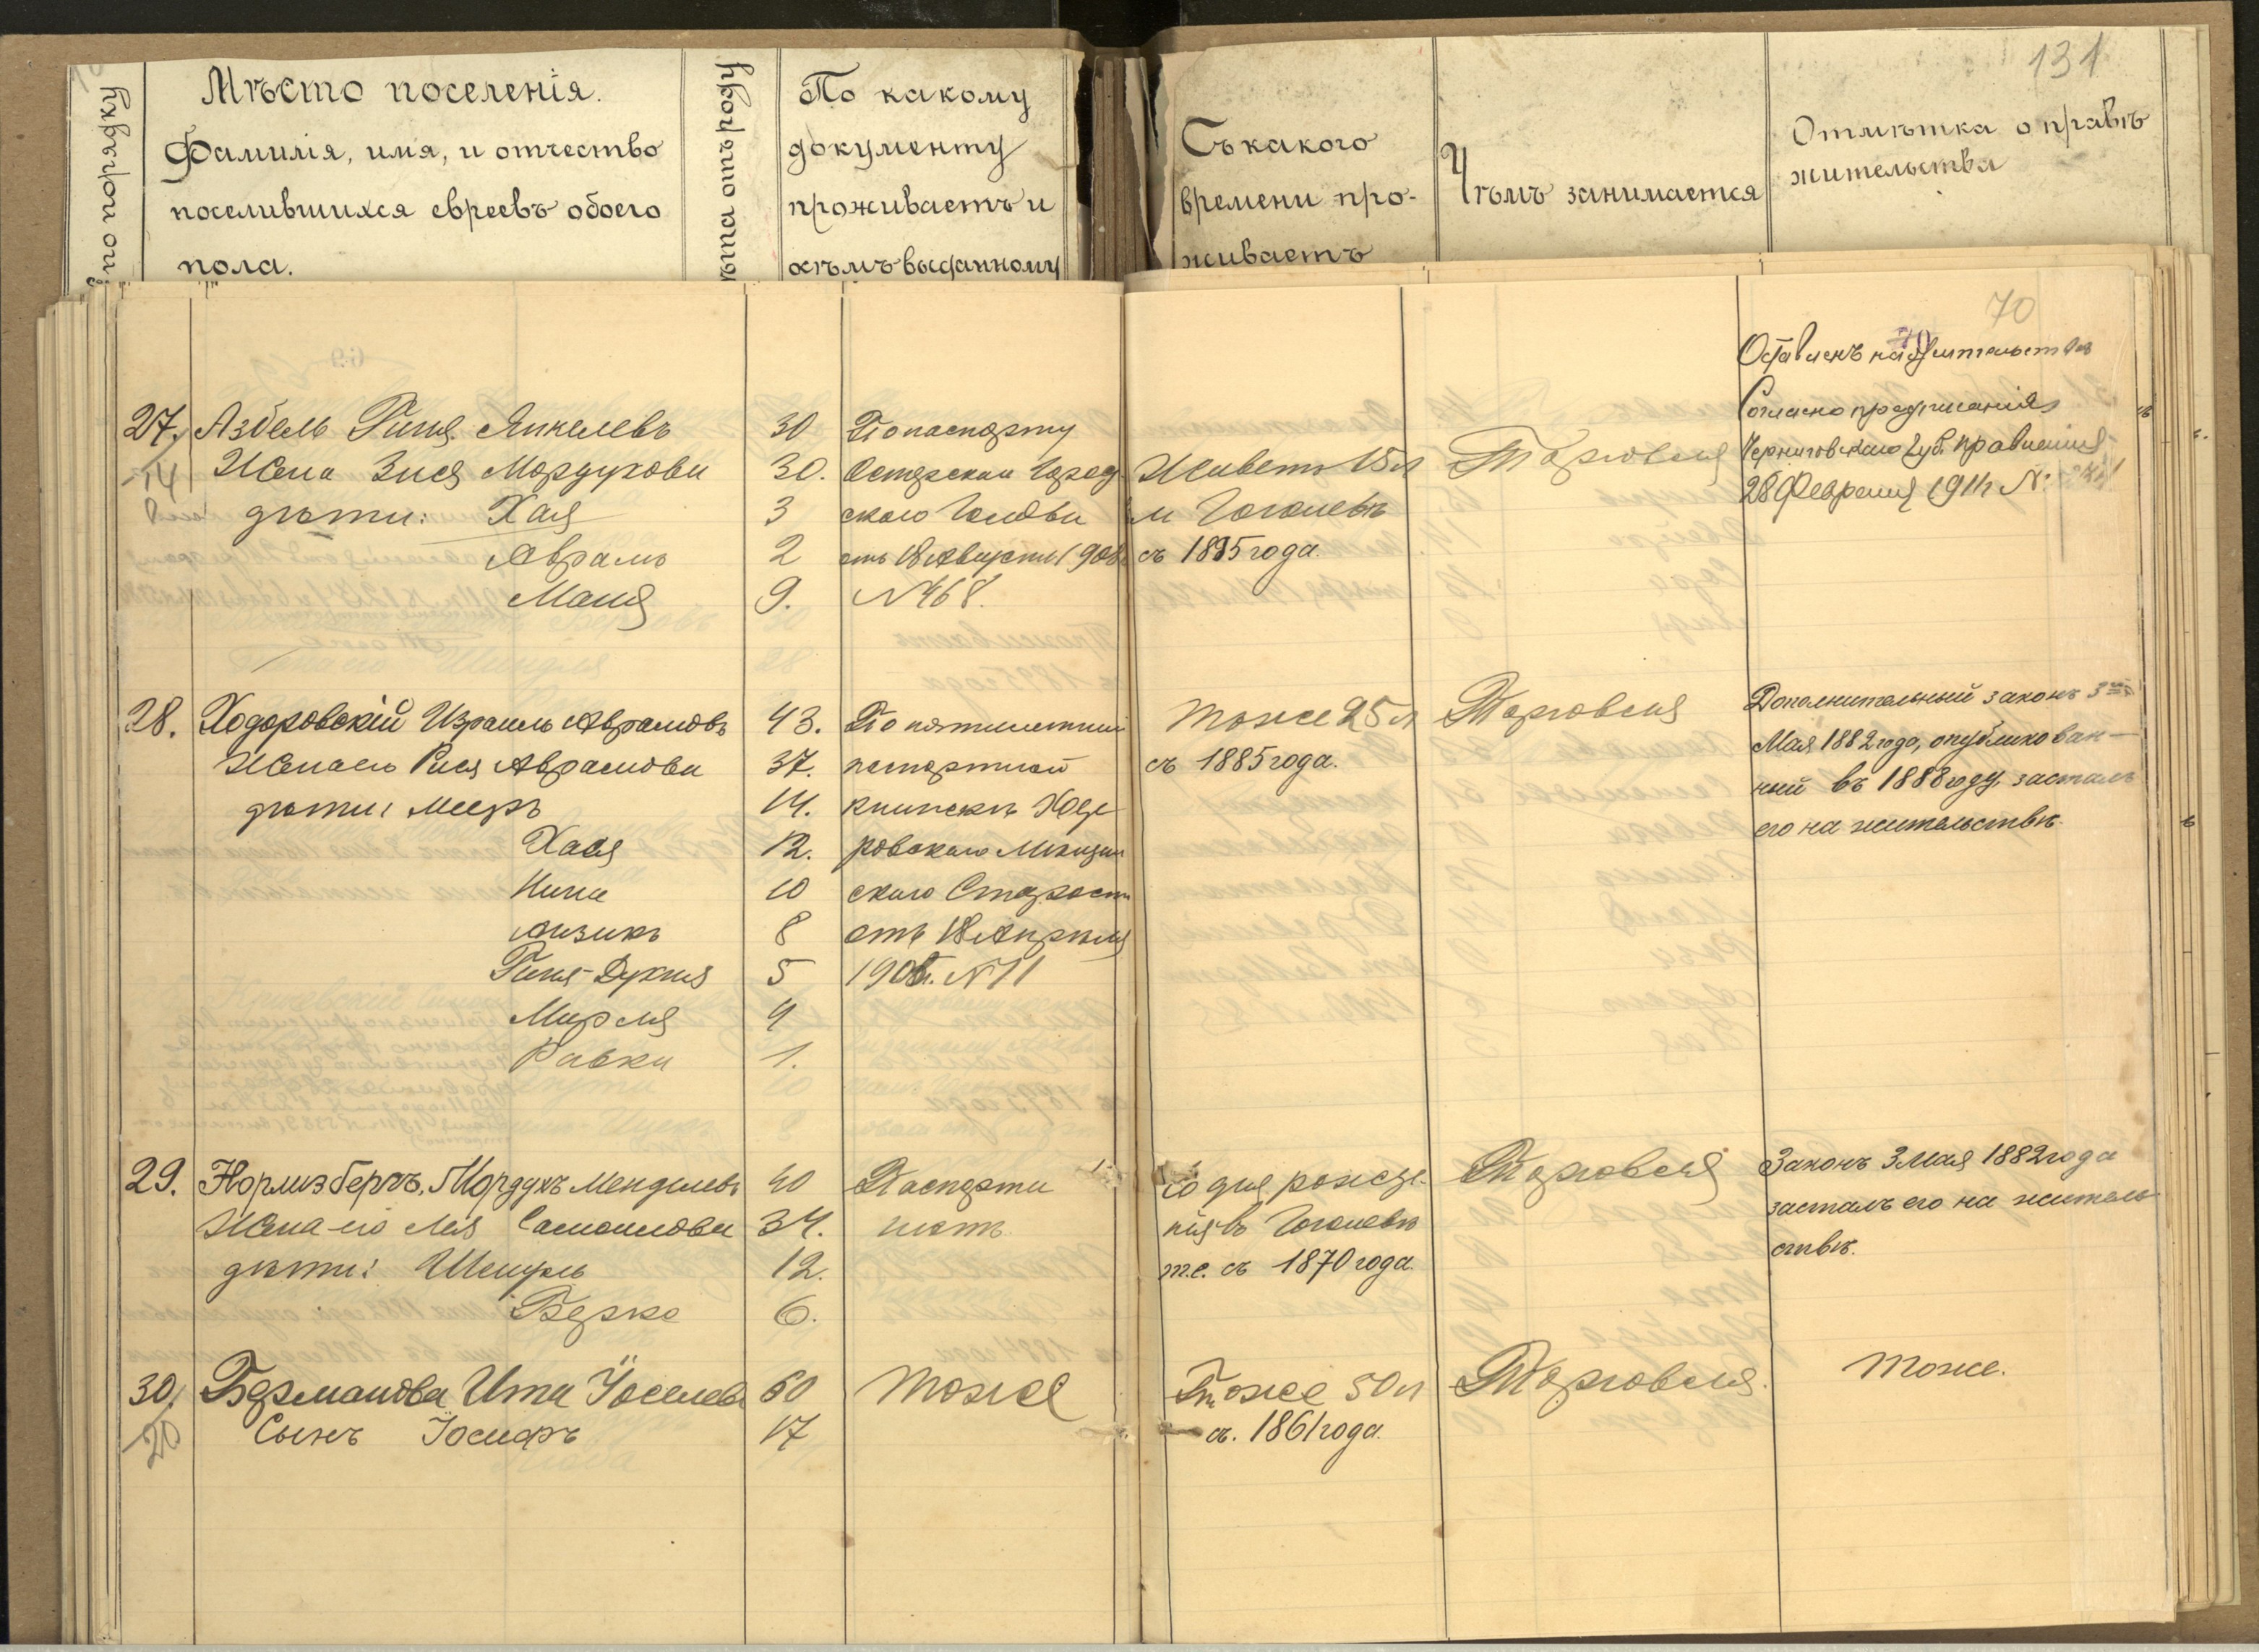 131
№ по порядку
Мѣсто поселенія.
Фамилія, имя, и отчество
поселившихся евреевъ обоего
пола.
Лѣта отъ роду
По какому
документу
проживаетъ и
кѣмъ выданному
Съ какого
времени про-
живаетъ
Чѣмъ занимается
Отмѣтка о правѣ
жительства
70
70
Оставленъ на жительствѣ
27. Азбель Янкелевъ 30 По паспорту Согласно предписанія
14 Жена Зися Мордухова 30. Остерской Город Живетъ 15 л Торговля Черниговскаго Губ. правленія
дѣти: Хая 3 ского Головы м Гоголевѣ 28 Февраля 1911 г №
Аврамъ 2 отъ 18 Августа съ 1895 года.
Маня 9. №468.
28. Ходоровскій Израиль Аврамовъ 43. По пятилетней тоже 25 л Торговля Дополнительный законъ 3го
Жена его Рися Аврамова 37. паспортной съ 1885 года. Мая 1882 года, опубликован-
дѣти: Мееръ 14. книжкѣ Ходо ный въ 1888 году, засталъ
Хася 12. ровского Мѣщан его на жительствѣ.
10 ского Старосты
Аизикъ 8 отъ 18 Апрѣля
5 №11
Мирля 4
Равка 1.
29. Мордухъ Менделевъ 40 Паспорта со дня рожде- Торговля Законъ 3 мая 1882 года
Жена его Лея Самойлова 34. нетъ. нія въ Гоголевѣ засталъ его на житель
дѣти: Шмуль 12. т.е. съ 1870 года. ствѣ.
Берко 6.
30. Берманова Ита Іоселева 60 тоже Тоже 50 л Торговля. тоже.
20 Сынъ Іосифъ 17 съ. 1861 года.